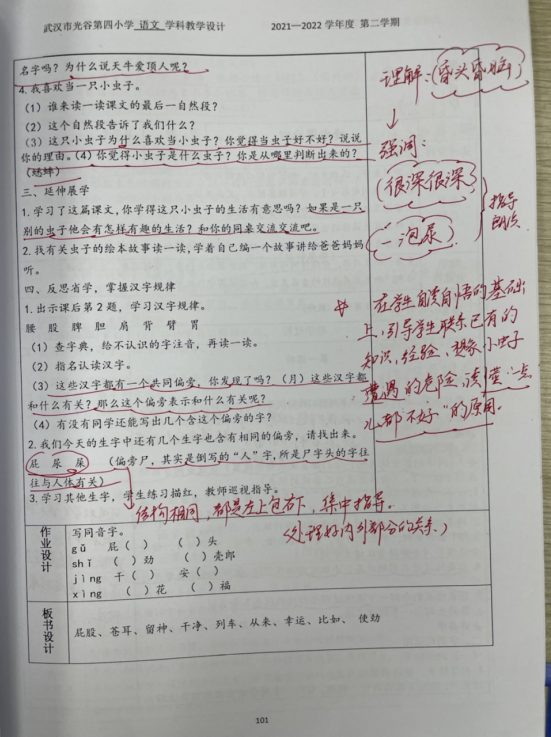 武汉市光谷第四小学 语文 学科教学设计
2021—2022学年度 第二学期
名字吗？为什么说天牛爱顶人呢？
4.我喜欢当一只小虫子。
（1）谁来读一读课文的最后一自然段？
（2）这个自然段告诉了我们什么？
（3）这只小虫子为什么喜欢当小虫子？你觉得当虫子好不好？说说
你的理由。（4）你觉得小虫子是什么虫子？你是从哪里判断出来的？
（蟋蟀）
三、延伸展学
1.学习了这篇课文，你学得这只小虫子的生活有意思吗？如果是一只
别的虫子他会有怎样有趣的生活？和你的同桌交流交流吧。
2.找有关虫子的绘本故事读一读，学着自己编一个故事讲给爸爸妈妈
听。
四、反思省学，掌握汉字规律
1.出示课后第2题，学习汉字规律。
腰 股 脾 胆 肩 背 臂 胃
（1）查字典，给不认识的字注音，再读一读。
（2）指名认读汉字。
（3）这些汉字都有一个共同偏旁，你发现了吗？（月）这些汉字都
和什么有关？那么这个偏旁表示和什么有关呢？
（4）有没有同学还能写出几个含这个偏旁的字？
2.我们今天的生字中还有几个生字也含有相同的偏旁，请找出来。
屁 尿 屎 （偏旁尸，其实是倒写的“人”字，所是尸字头的字往
往与人体有关）
3.学习其他生字，学生练习描红，教师巡视指导。
结构相同，都是左上包右下，集中指导。
（处理好内外部分的关系）
理解：昏头昏脑
↓
强调：
很深很深
一泡尿
指导
朗读
在学生自读自悟的基础
上，引导学生联系已有的
知识，经验，想象小虫子
遭遇的危险，谈“一点
儿都不好”的原因。
作业设计
写同音字。
gǔ 屁（ ） （ ）头
shǐ （ ）劲 （ ）壳郎
jìng 干（ ） 安（ ）
xìng （ ）花 （ ）福
板书设计
屁股、苍耳、留神、干净、列车、从来、幸运、比如、 使劲
101